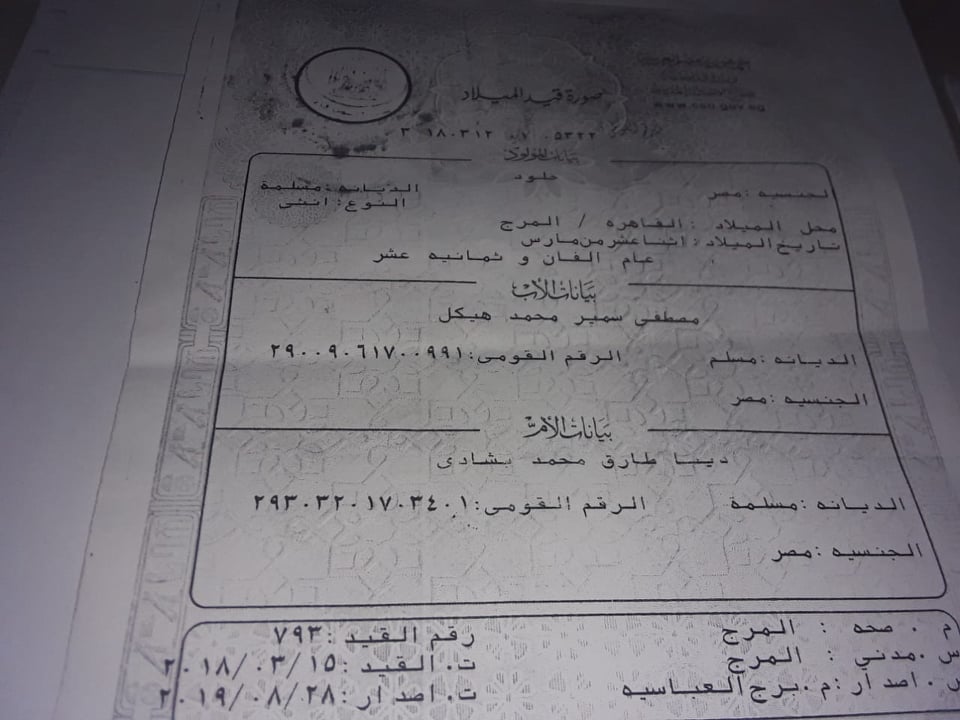 صورة قيد الميلاد
www.cso.gov.eg
٣ ١٨٠٣١٢ ٠٧ ٠٥٣٢٢
بيانات المولود
خلود
الجنسيه :مصر
الديانه :مسلمة
النوع: انثى
محل الميلاد : القاهره / المرج
تاريخ الميلاد : اثنا عشر من مارس
عام الفان و ثمانيه عشر
بيانات الأب
مصطفى سمير محمد هيكل
الديانه :مسلم الرقم القومى:٢٩٠٠٩٠٦١٧٠٠٩٩١
الجنسيه :مصر
بيانات الأم
دينا طارق محمد بشادى
الديانه :مسلمة الرقم القومى:٢٩٣٠٣٢٠١٧٠٣٤٠١
الجنسيه :مصر
م . صحه : المرج رقم القيد :٧٩٣
س .مدني : المرج ت. القيد :٢٠١٨/٠٣/١٥
س . اصدار :م.برج العباسيه ت. اصدار :٢٠١٩/٠٨/٢٨